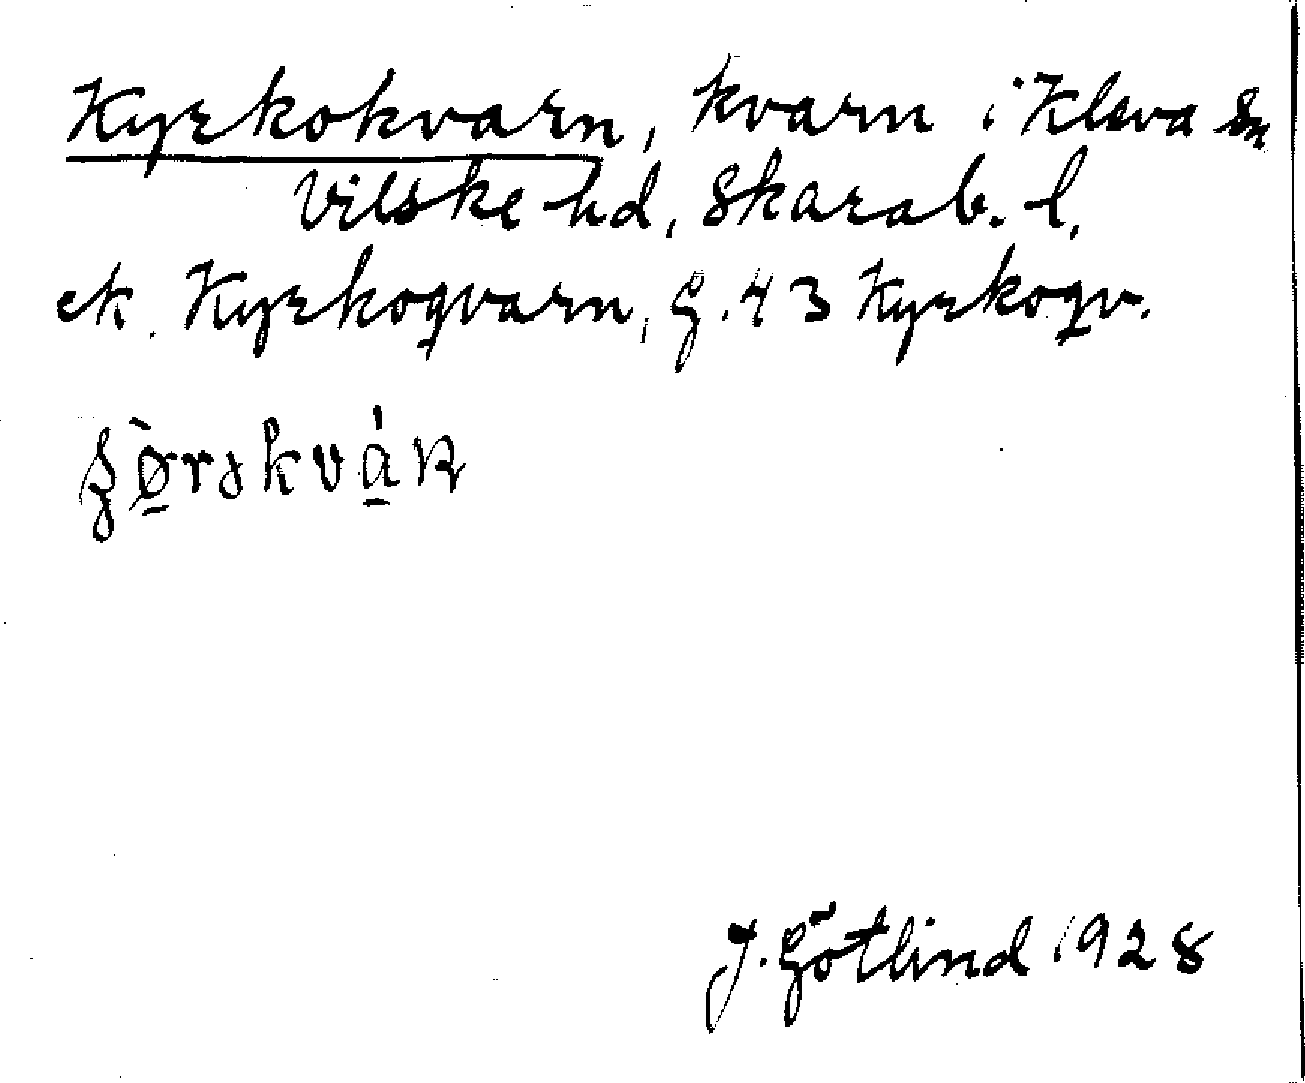 Kyrkokvarn, kvarn i Kleva sn
Vilske hd, Skarab. l.
ek. Kyrkoqvarn, G. 43 Kyrkoqv.
J. Götlind 1928